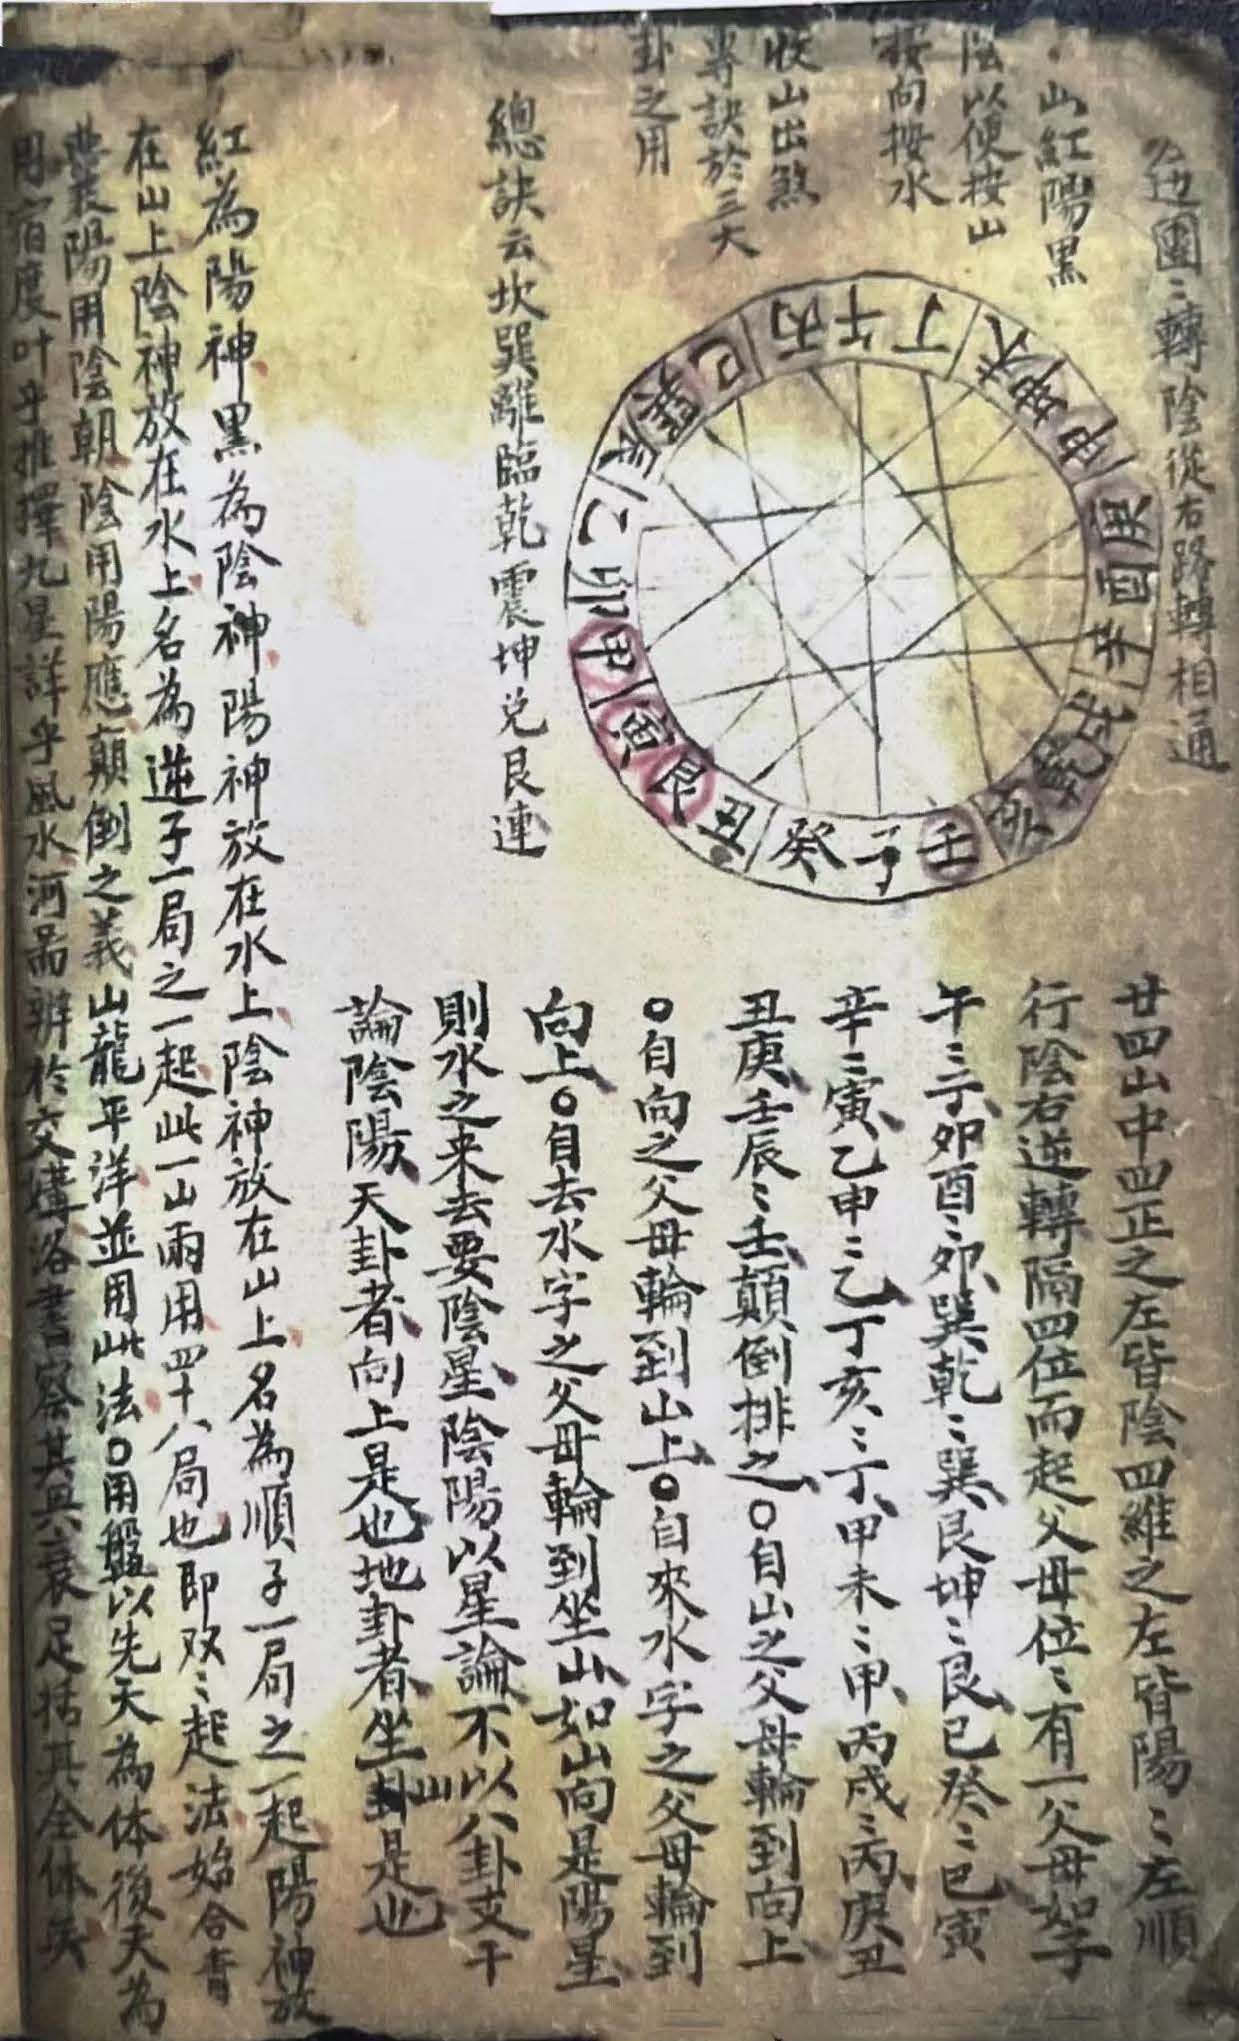 边團〻轉陰從右路轉相通
山紅陽黑
陰以便按山
按向按水
收山出煞
專訣於三大
卦之用
丙午丁未坤申庚酉辛戌乾亥壬子癸丑艮寅甲卯乙辰巽巳
總訣云坎巽離臨乾震坤兌艮連
廿四山中四正之左皆陰四維之左皆陽〻左順
行陰右逆轉隔四位而起父母位〻有一父母如子
午〻子卯酉〻卯巽乾〻巽艮坤〻艮巳癸〻巳寅
辛〻寅乙申〻乙丁亥〻丁甲未〻甲丙戌〻丙庚丑
丑庚壬辰〻壬顛倒排之○自山之父母輪到向上
○自向之父母輪到山上○自來水字之父母輪到
向上○自去水字之父母輪到坐山如山向是陽星
則水之来去要陰星陰陽以星論不以八卦支干
論陰陽天卦者向上是也地卦者坐山是也
紅為陽神黑為陰神陽神放在水上陰神放在山上名為順子一局之一起陽神放
在山上陰神放在水上名為逆子一局之一起此一山兩用四十八局也即双〻起法始合青
囊陽用陰朝陰用陽應顛倒之義山龍平洋並用此法○用盤以先天為体後天為
用宿度叶乎推擇九星詳乎風水河啚辨於交媾洛書察其興衰足括其全体矣